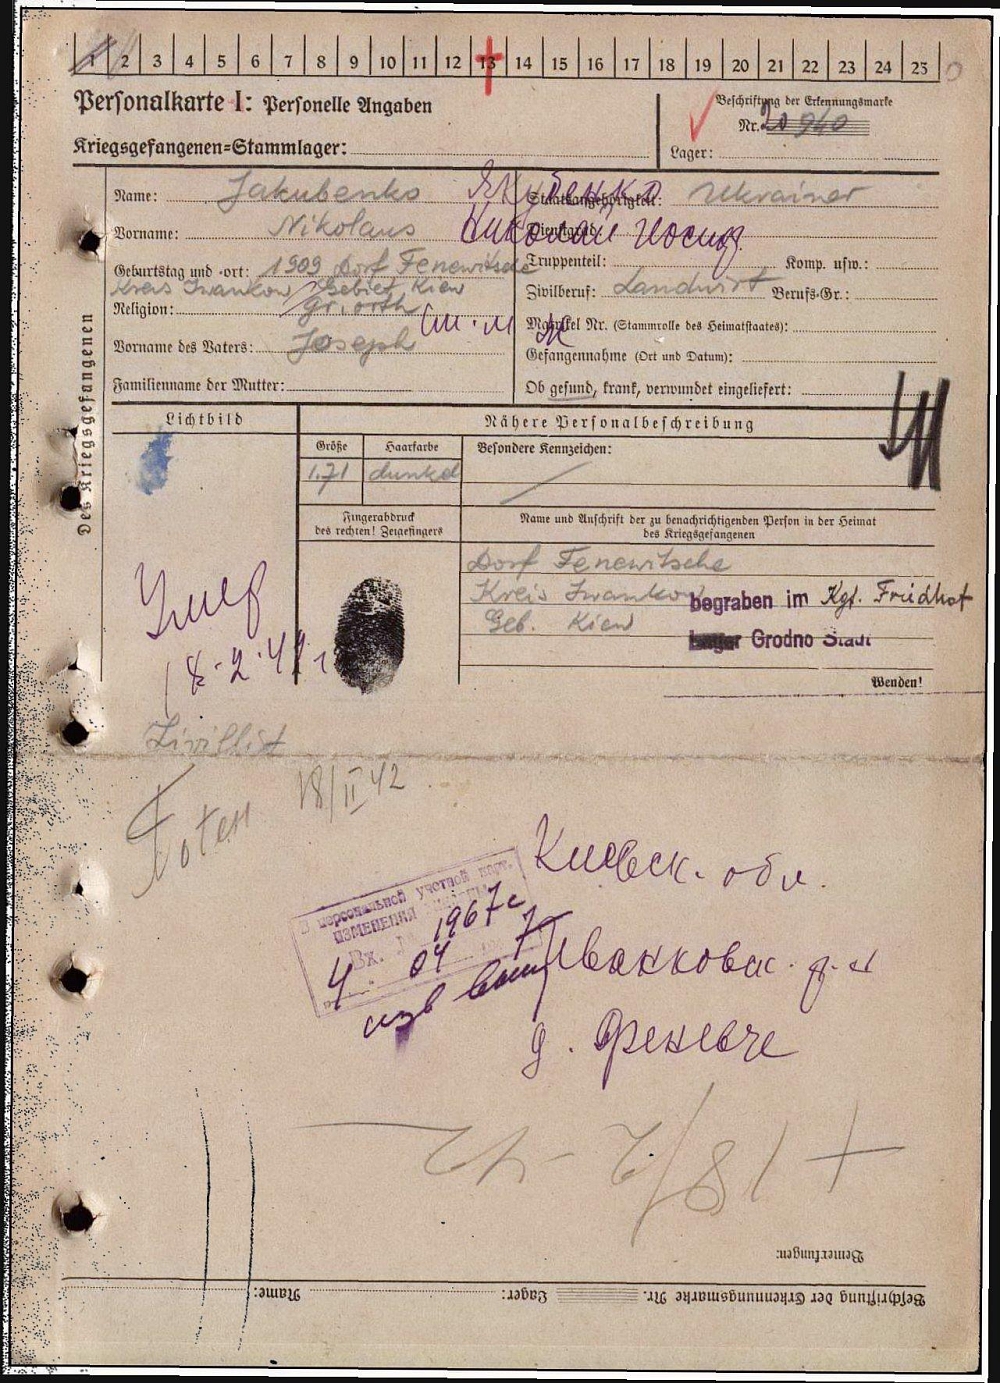 1 2 3 4 5 6 7 8 9 10 11 12 13 14 15 16 17 18 19 20 21 22 23 24 25
Personalkarte I: Personelle Angaben
Kriegsgefangenen-Stammlager:
Beschriftung der Erkennungsmarke
Nr. 20 940
Lager:
Des Kriegsgefangenen
Name: Jakubenko
Якубенко
Vorname: Nikolaus
Николай Иосиф
Geburtstag und -ort: 1909 Dorf Fenewitsche
Kreis Iwankow Gebiet Kiew
Religion: gr. orth
Vorname des Vaters: Joseph
Familienname der Mutter:
Staatsangehörigkeit: Ukrainer
Dienstgrad:
Truppenteil: Komp. usw.:
Zivilberuf: Landwirt Berufs-Gr.:
Matrikel Nr. (Stammrolle des Heimatstaates):
Gefangennahme (Ort und Datum):
Ob gesund, krank, verwundet eingeliefert:
Lichtbild
Nähere Personalbeschreibung
Größe Haarfarbe Besondere Kennzeichen:
1.71 dunkel
Fingerabdruck
des rechten! Zeigefingers
Name und Anschrift der zu benachrichtigenden Person in der Heimat
des Kriegsgefangenen
Dorf Fenewitsche
Kreis Iwankow
Geb. Kiew
begraben im Kgf. Friedhof
Lager Grodno Stadt
Wenden!
Умер
18-2-42 г
Zivillist
Toten 18/II 42
персональной учетной
ИЗМЕНЕНИЯ
Вх.
4 04 1967 г
Киевск. обл.
Иванковск. р-н
д. Феневче
+ 18/2-42
Bemerkungen:
Beschriftung der Erkennungsmarke Nr. Lager: Name: